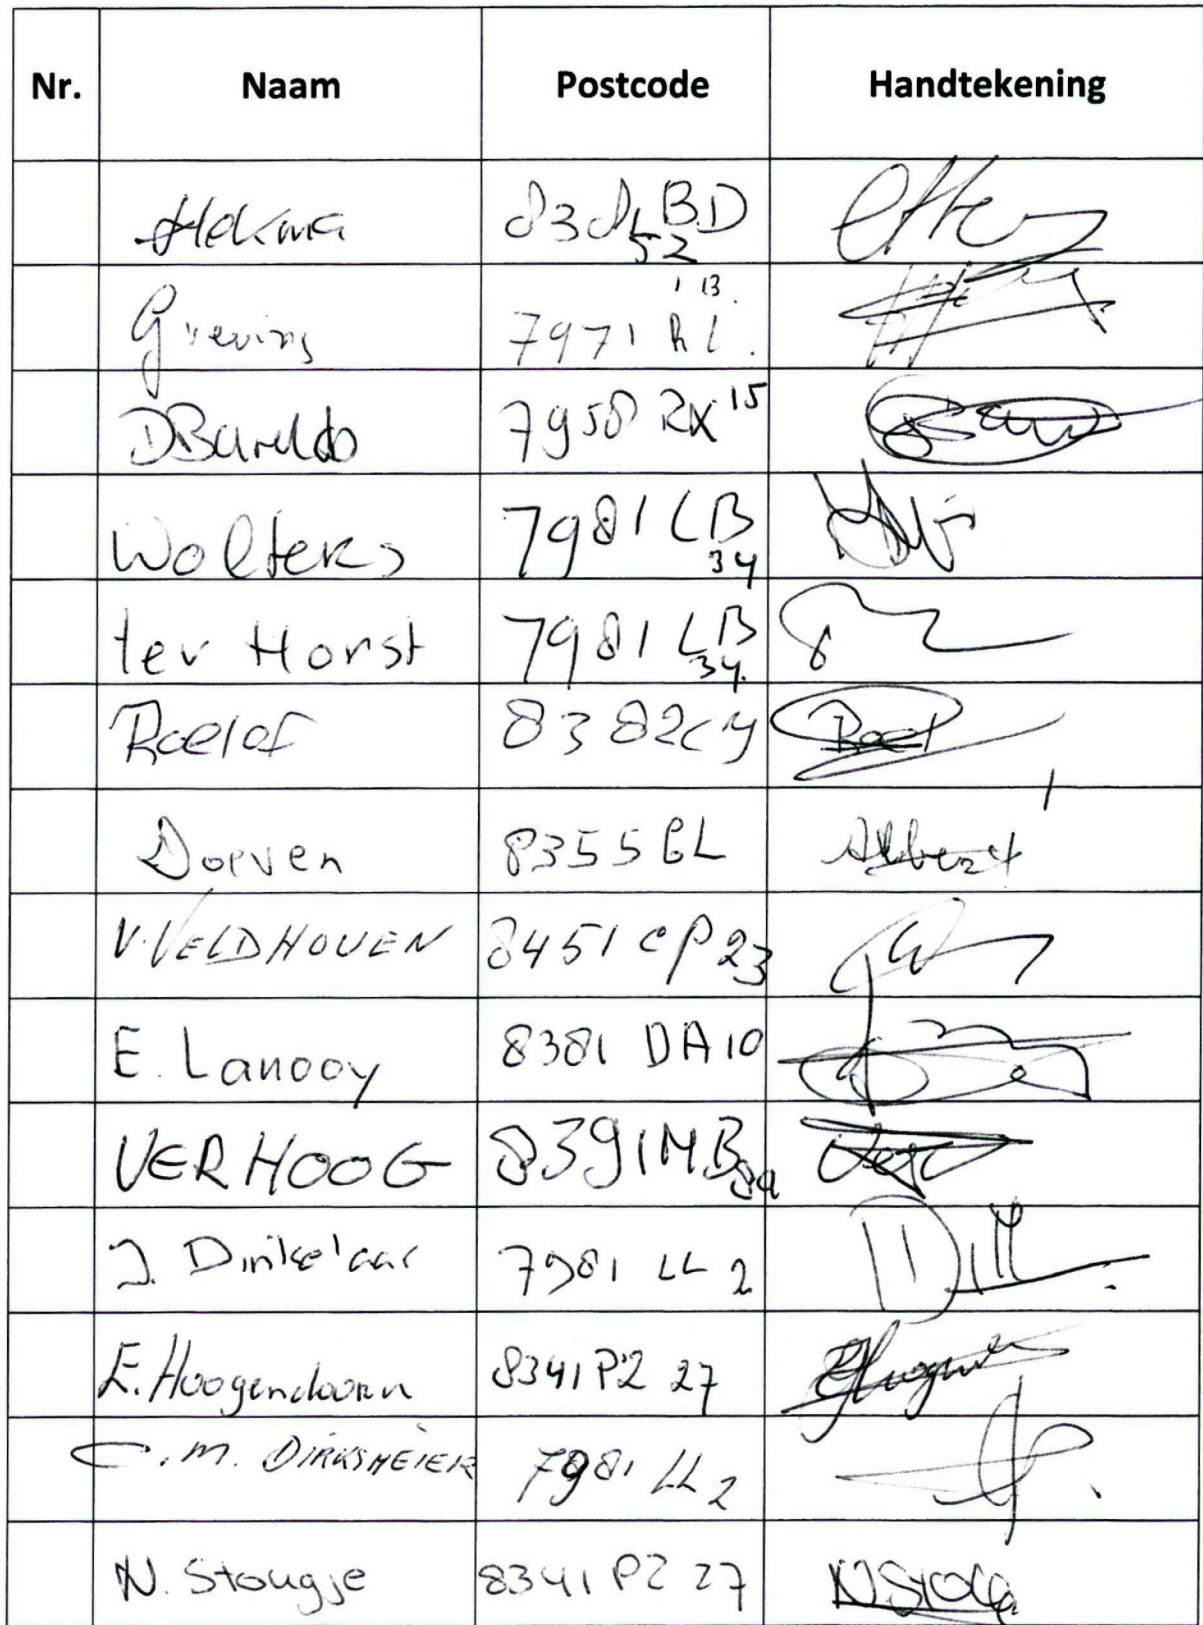 Nr. Naam Postcode Handtekening
Hekma 838 BD
52
1 13.
Greving 7971 RL.
7958 RX 15
Wolters 7981 LB
34
ter Horst 7981 LB
34.
Roelof 8382CY Roel
Doeven 8355 BL Albert
V. VELDHOVEN 8451 CP 23
E. Lanooy 8381 DA 10
VERHOOG 8391MB
9a
J. Dinkelaar 7981 LL 2
E. Hoogendoorn 8341 PZ 27
C. M. DIRKSMEIER 7981 LL 2
N. Stougje 8341 PZ 27